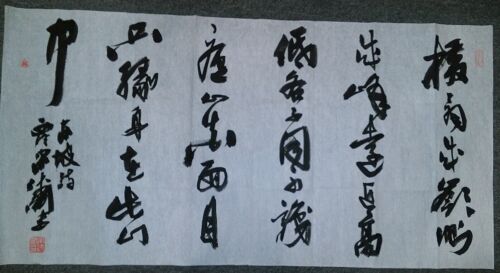 横看成嶺側
成峰遠近高
低各不同不識
廬山真面目
只緣身在此山
中
東坡詩